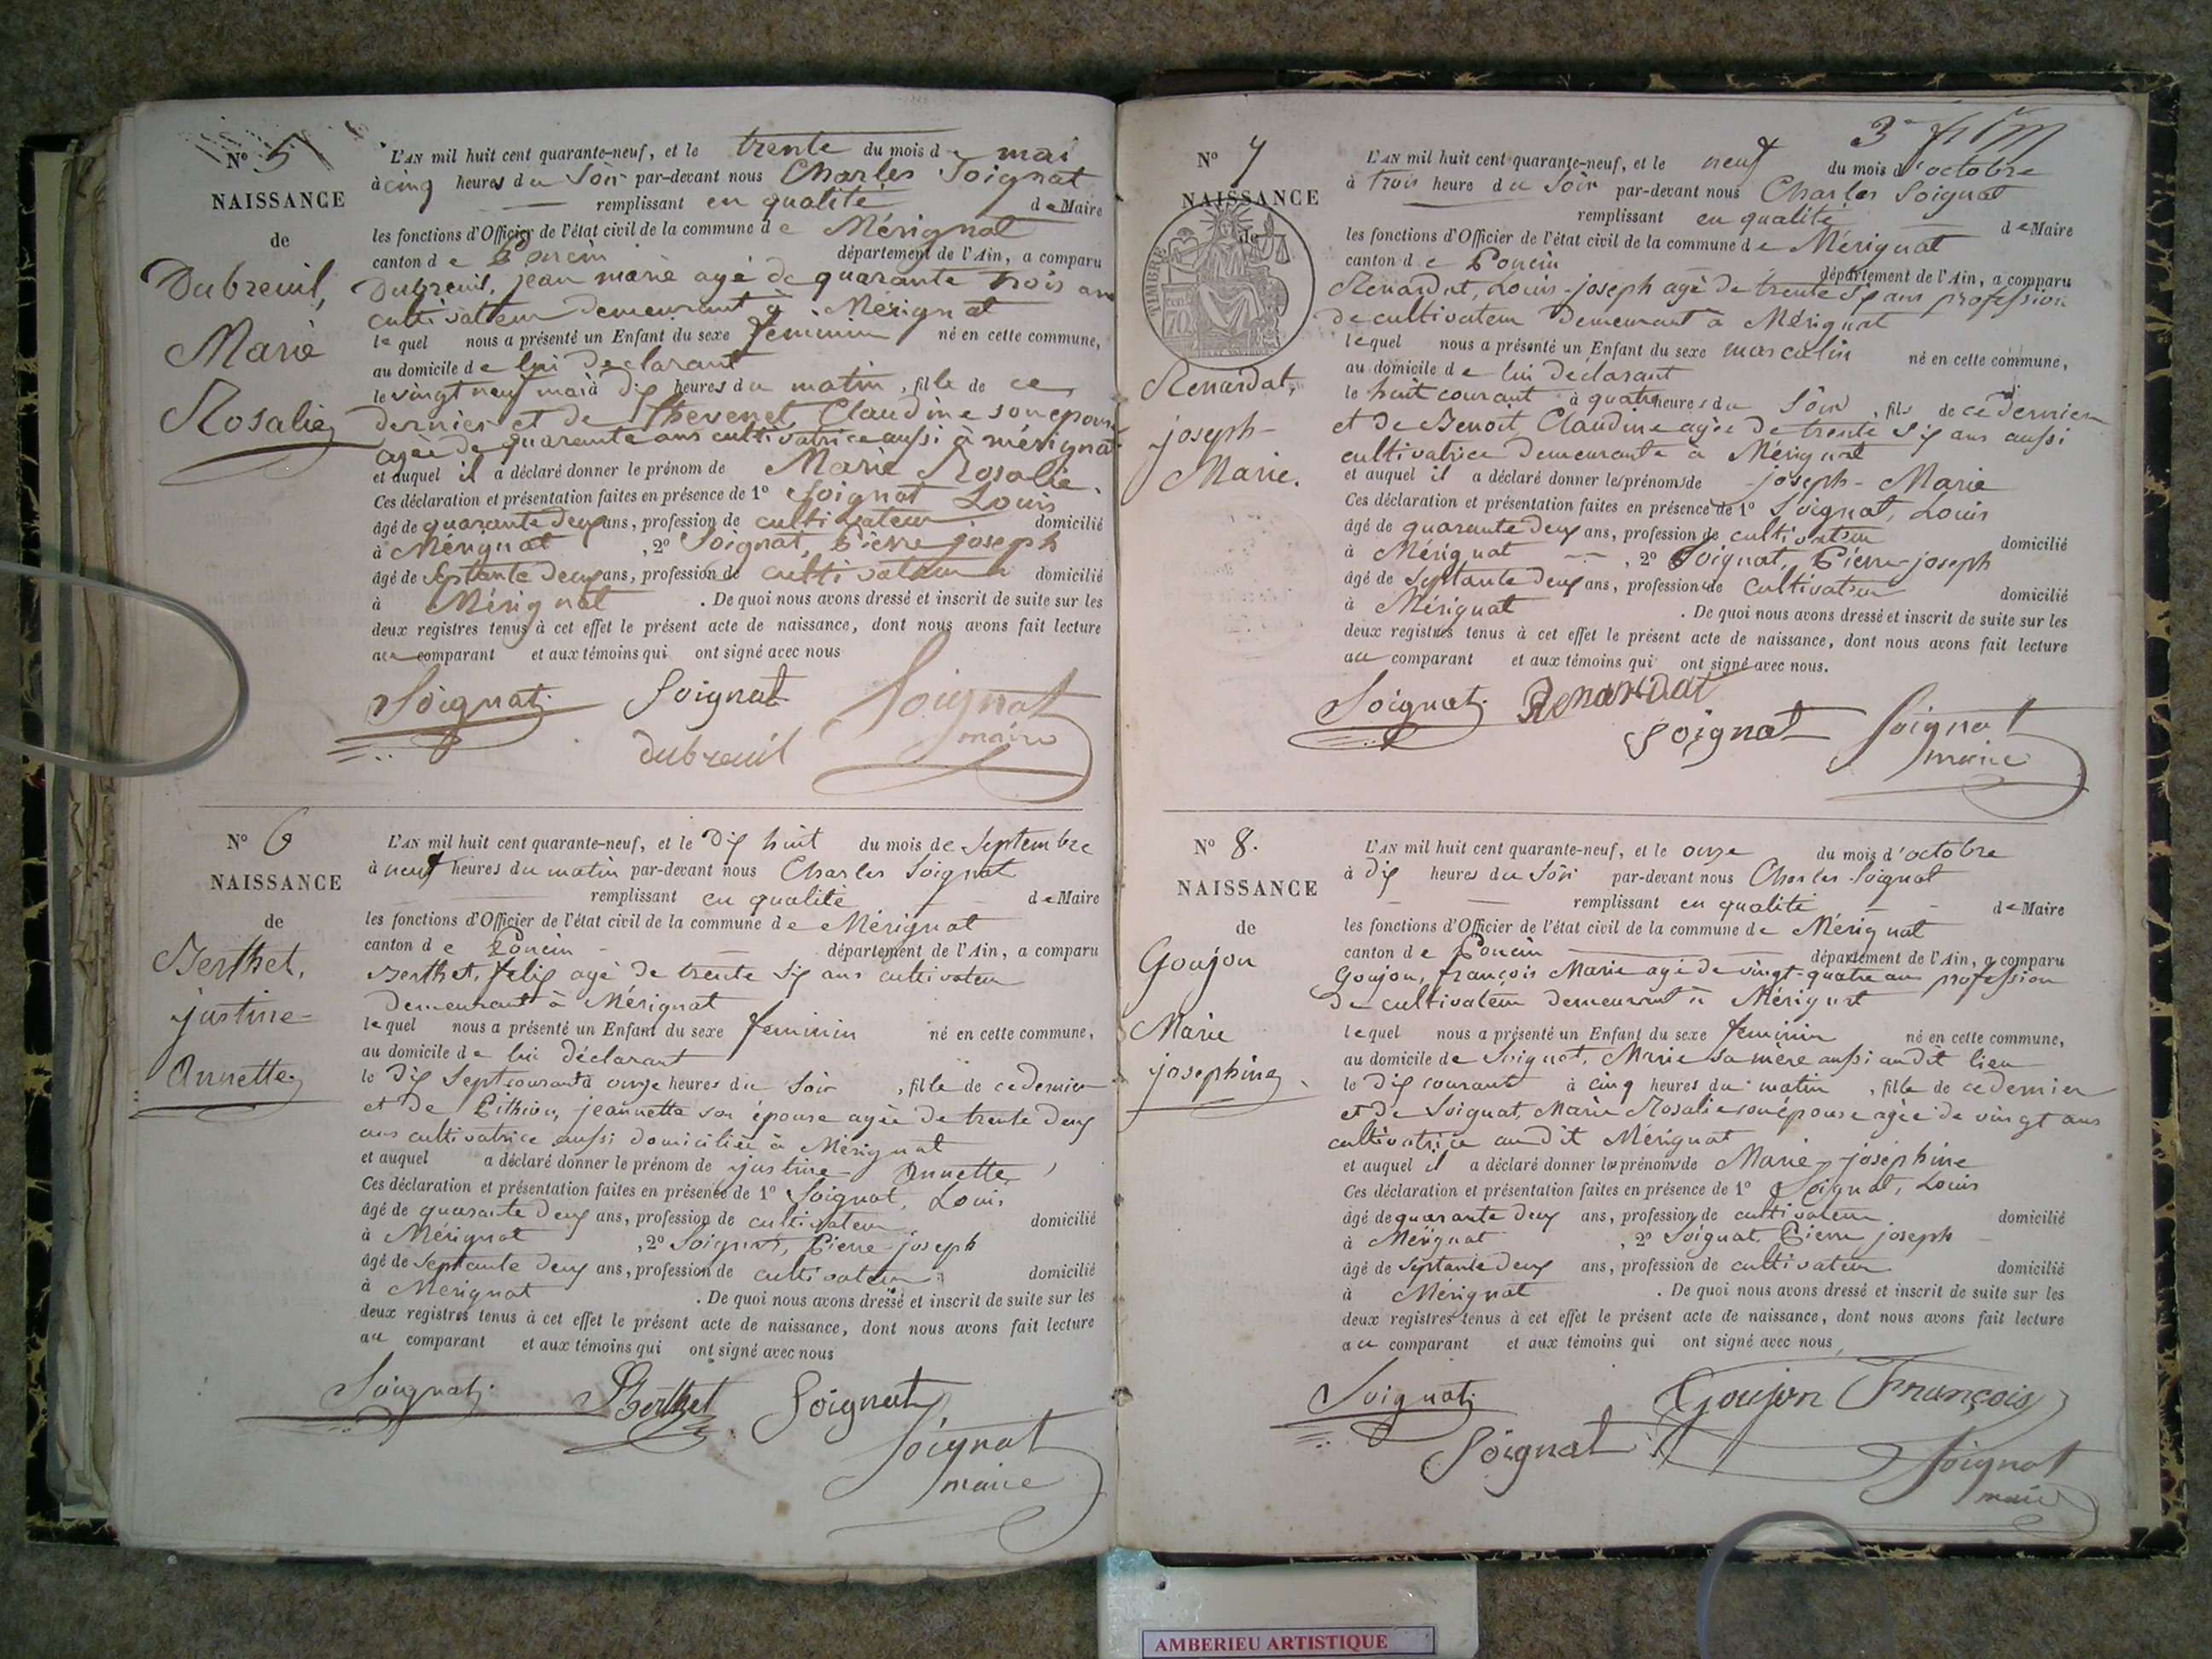 N° 5
NAISSANCE
de
Dubreuil,
Marie
Rosalie
L'AN mil huit cent quarante-neuf, et le trente du mois de mai
à cinq heures du soir par-devant nous Charles Soignat
remplissant en qualité de Maire
les fonctions d'Officier de l'état civil de la commune de Mérignat
canton de Poncin département de l'Ain, a comparu
Dubreuil, jean marie agé de quarante trois ans
cultivateur demeurant à Mérignat
lequel nous a présenté un Enfant du sexe feminin né en cette commune,
au domicile de lui declarant
le vingt neuf mai à dix heures du matin, fille de ce
dernier et de Thevenet Claudine son epouse
agée de quarante ans cultivatrice aussi à mérignat
et auquel il a déclaré donner le prénom de Marie Rosalie.
Ces déclaration et présentation faites en présence de 1° Soignat Louis
âgé de quarante deux ans, profession de cultivateur domicilié
à Mérignat, 2° Soignat, Pierre joseph
âgé de septante deux ans, profession de cultivateur domicilié
à Mérignat. De quoi nous avons dressé et inscrit de suite sur les
deux registres tenus à cet effet le présent acte de naissance, dont nous avons fait lecture
au comparant et aux témoins qui ont signé avec nous
Soignat Soignat Soignat
dubreuil maire
N° 6
NAISSANCE
de
Berthet,
justine-
Annette
L'AN mil huit cent quarante-neuf, et le dix huit du mois de septembre
à neuf heures du matin par-devant nous Charles Soignat
remplissant en qualité de Maire
les fonctions d'Officier de l'état civil de la commune de Mérignat
canton de Poncin département de l'Ain, a comparu
Berthet, felix agé de trente six ans cultivateur
demeurant à Mérignat
lequel nous a présenté un Enfant du sexe feminin né en cette commune,
au domicile de lui déclarant
le dix sept courant à onze heures du soir, fille de ce dernier
et de jeannette son épouse agée de trente deux
ans cultivatrice aussi domiciliée à Mérignat
et auquel a déclaré donner le prénom de justine- Annette,
Ces déclaration et présentation faites en présence de 1° Soignat, Louis
âgé de quarante deux ans, profession de cultivateur domicilié
à Mérignat, 2° Soignat, Pierre-joseph
âgé de septante deux ans, profession de cultivateur domicilié
à Mérignat. De quoi nous avons dressé et inscrit de suite sur les
deux registres tenus à cet effet le présent acte de naissance, dont nous avons fait lecture
au comparant et aux témoins qui ont signé avec nous
Soignat Berthet Soignat
Soignat
maire
3e
N° 7
NAISSANCE
de
TIMBRE
Renardat,
joseph-
Marie.
L'AN mil huit cent quarante-neuf, et le neuf du mois d'octobre
à trois heure du soir par-devant nous Charles Soignat
remplissant en qualité de Maire
les fonctions d'Officier de l'état civil de la commune de Mérignat
canton de Poncin département de l'Ain, a comparu
Renardat, Louis-joseph agé de trente six ans profession
de cultivateur demeurant à Mérignat
lequel nous a présenté un Enfant du sexe masculin né en cette commune,
au domicile de lui declarant
le huit courant à quatre heures du soir, fils de ce dernier
et de Benoit, Claudine agée de trente six ans aussi
cultivatrice demeurante à Mérignat
et auquel il a déclaré donner les prénoms de joseph-Marie
Ces déclaration et présentation faites en présence de 1° Soignat, Louis
âgé de quarante deux ans, profession de cultivateur domicilié
à Mérignat, 2° Soignat, Pierre-joseph
âgé de septante deux ans, profession de cultivateur domicilié
à Mérignat. De quoi nous avons dressé et inscrit de suite sur les
deux registres tenus à cet effet le présent acte de naissance, dont nous avons fait lecture
au comparant et aux témoins qui ont signé avec nous.
Soignat Renardat
Soignat Soignat
maire
N° 8.
NAISSANCE
de
Goujon
Marie
josephine
L'AN mil huit cent quarante-neuf, et le onze du mois d'octobre
à dix heures du soir par-devant nous Charles Soignat
remplissant en qualité de Maire
les fonctions d'Officier de l'état civil de la commune de Mérignat
canton de Poncin département de l'Ain, a comparu
Goujon, françois Marie agé de vingt-quatre ans profession
de cultivateur demeurant à Mérignat
lequel nous a présenté un Enfant du sexe feminin né en cette commune,
au domicile de Soignat, Marie sa mère aussi au dit lieu
le dix courant à cinq heures du matin, fille de ce dernier
et de Soignat, Marie Rosalie son épouse agée de vingt ans
cultivatrice au dit Mérignat
et auquel il a déclaré donner les prénoms de Marie-joséphine
Ces déclaration et présentation faites en présence de 1° Soignat, Louis
âgé de quarante deux ans, profession de cultivateur domicilié
à Mérignat, 2° Soignat Pierre joseph
âgé de septante deux ans, profession de cultivateur domicilié
à Mérignat. De quoi nous avons dressé et inscrit de suite sur les
deux registres tenus à cet effet le présent acte de naissance, dont nous avons fait lecture
au comparant et aux témoins qui ont signé avec nous
Soignat Goujon François
Soignat Soignat
maire
AMBERIEU ARTISTIQUE